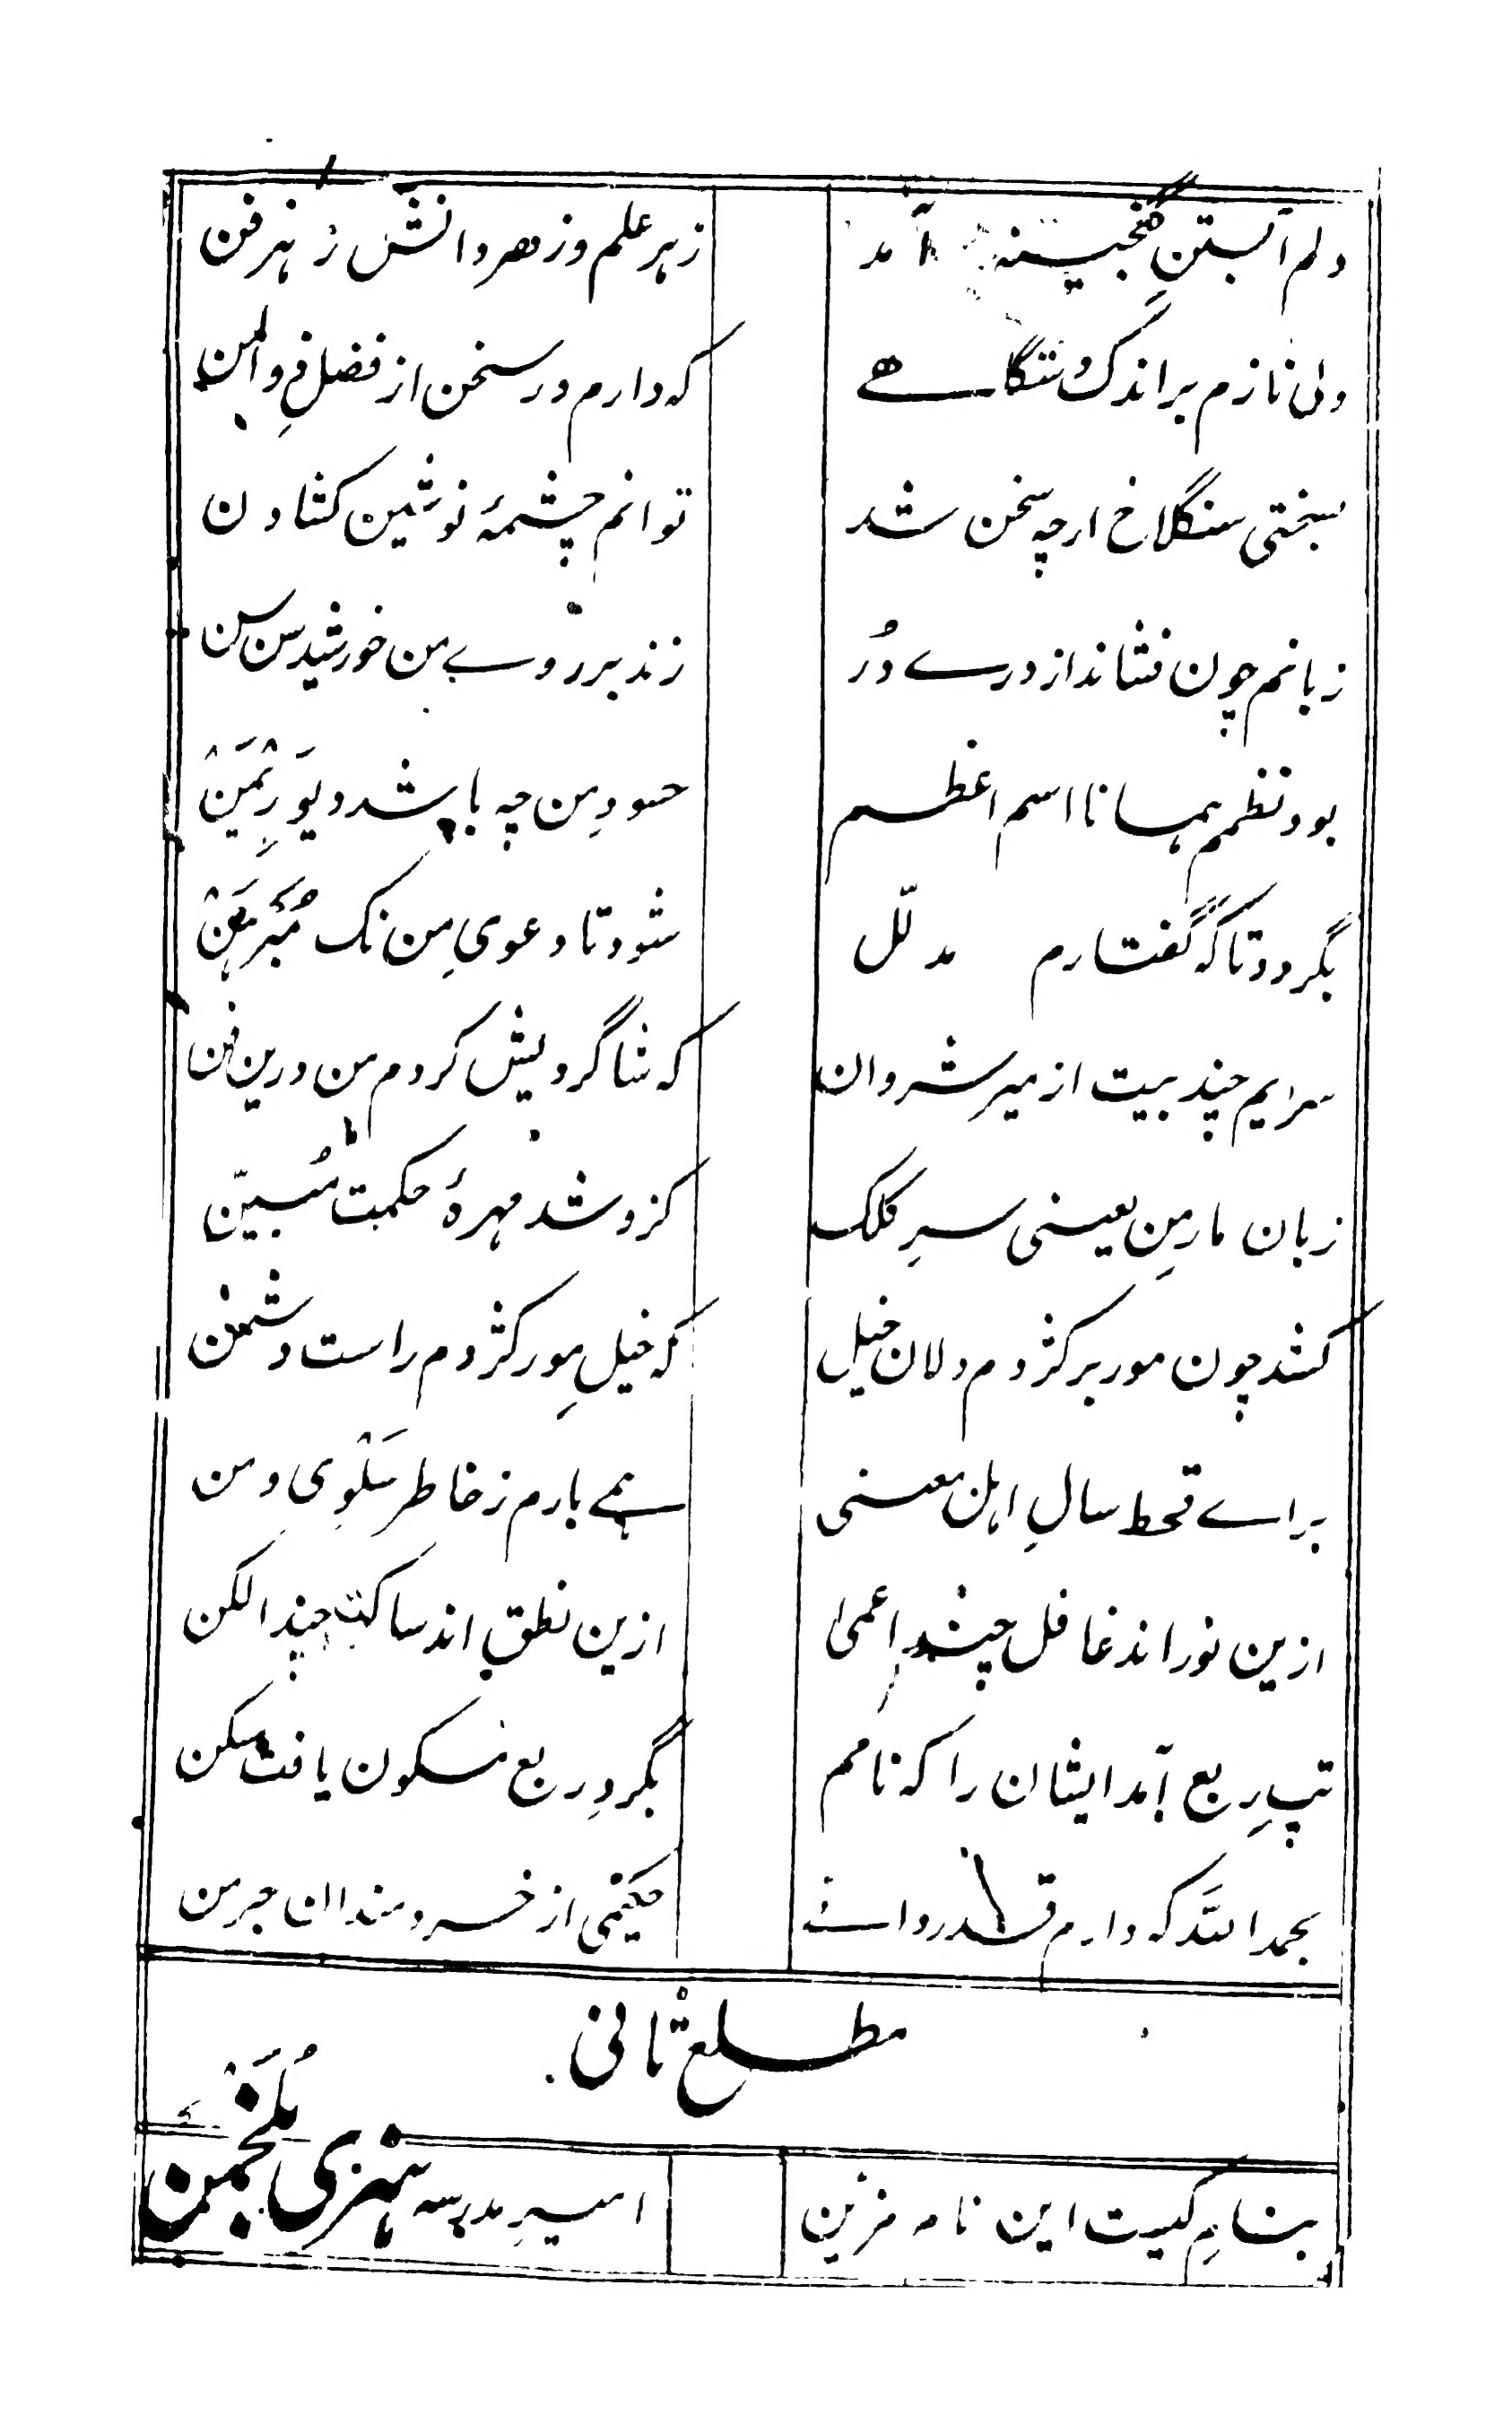 دلم آبستنِ گنجینه آمد
زهر علم و ز هر دانش ز هر فن
ولی نازم بر اندک دستگاهے
که دارم در سخن از فضلِ ذوالمن
بسختی سنگلاخ ارچه سخن شد
توانم چشمهٔ نوشین کشادن
زبانم چون فشاند از درے دُر
زند بر روے من خورشید سن سن
بود نظمم همانا اسم اعظم
حسودِ من چه باشد دیوِ رِیمَنْ
بگردد تا که گفتارم مدلّل
شود تا دعویِ من نک مُبَرهَنْ
سرایم چند بیت از میر شروان
که شاگردیش کردم من درین فن
زبان مارِ من یعنی سرِ کلک
کزو شد مهرهٔ حکمت مُبیّن
کشد چون مور بر کژدم دلان خیل
که خیلِ مور کژدم راست دشمن
براے قحط سالِ اهل معنی
همے بارم ز خاطر سَلْوی و من
ازین نور اند غافل چند اعمی
ازین نطق اند ساکت چند الکن
تپِ رِبع آمد ایشان را که نامم
بگردِ ربع مسکون یافت مسکن
بحمد اللّه که دارم قدردانے
حکیمی از خردمندان جرمن
مطلع ثانی
بنامِ کیست این نامه مزین
امیرِ مدرسه هنری بُلُخمَنْ